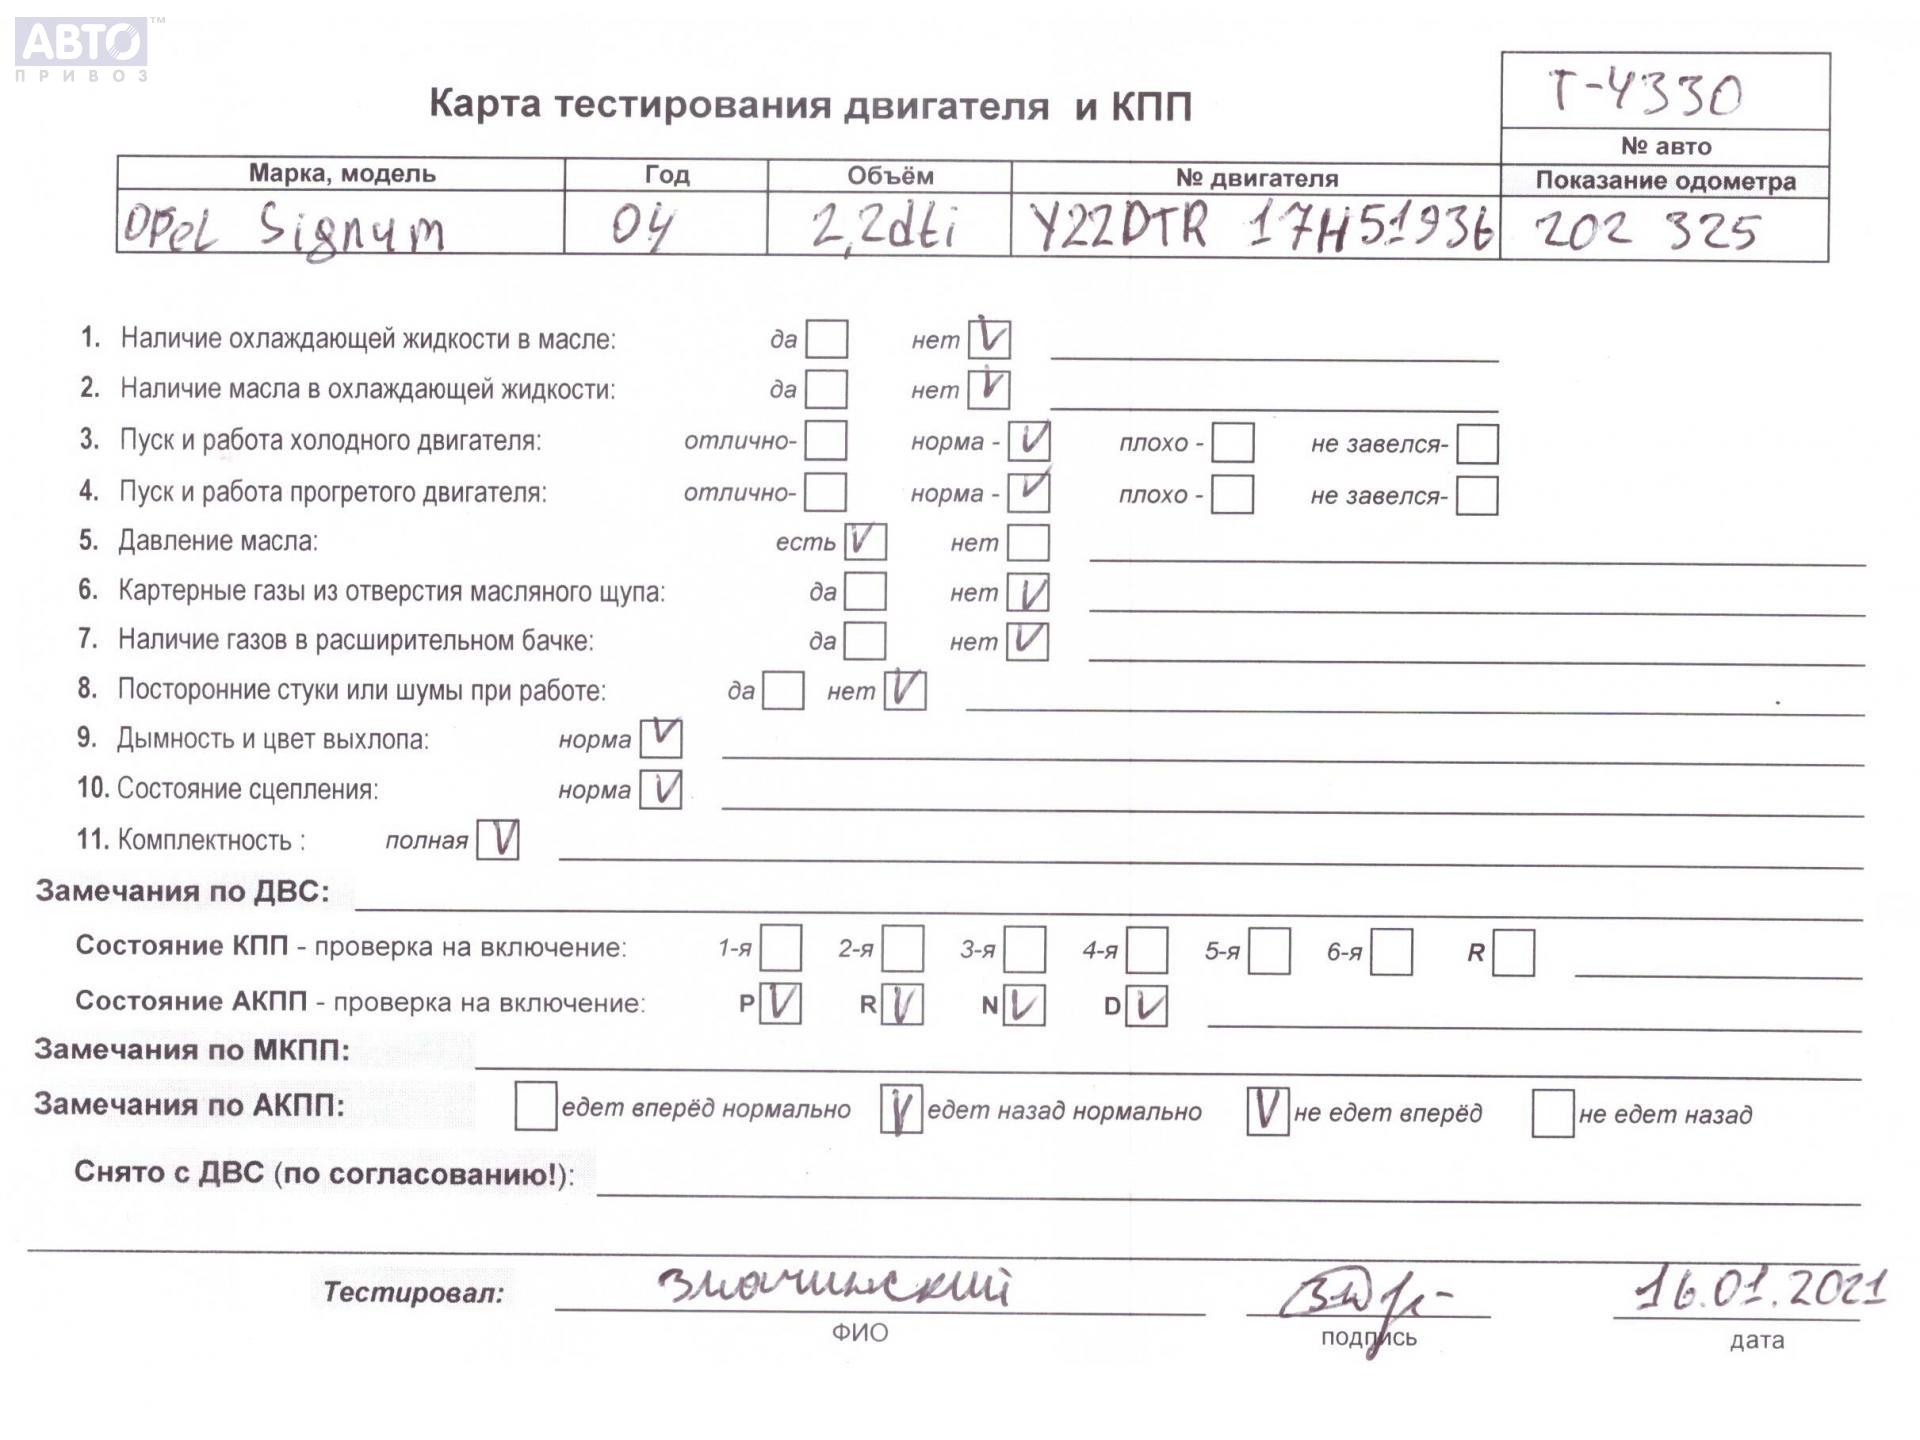 АВТО™
ПРИВОЗ
Т-4330
Карта тестирования двигателя и КПП
№ авто
Марка, модель Год Объём № двигателя Показание одометра
Opel Signum 04 2,2dti Y22DTR 17H51936 202 325
1. Наличие охлаждающей жидкости в масле: да нет V
2. Наличие масла в охлаждающей жидкости: да нет V
3. Пуск и работа холодного двигателя: отлично- норма - V плохо - не завелся-
4. Пуск и работа прогретого двигателя: отлично- норма - V плохо - не завелся-
5. Давление масла: есть V нет
6. Картерные газы из отверстия масляного щупа: да нет V
7. Наличие газов в расширительном бачке: да нет V
8. Посторонние стуки или шумы при работе: да нет V
9. Дымность и цвет выхлопа: норма V
10. Состояние сцепления: норма V
11. Комплектность : полная V
Замечания по ДВС:
Состояние КПП - проверка на включение: 1-я 2-я 3-я 4-я 5-я 6-я R
Состояние АКПП - проверка на включение: P V R V N V D V
Замечания по МКПП:
Замечания по АКПП: едет вперёд нормально V едет назад нормально V не едет вперёд не едет назад
Снято с ДВС (по согласованию!):
Тестировал: 16.01.2021
ФИО подпись дата